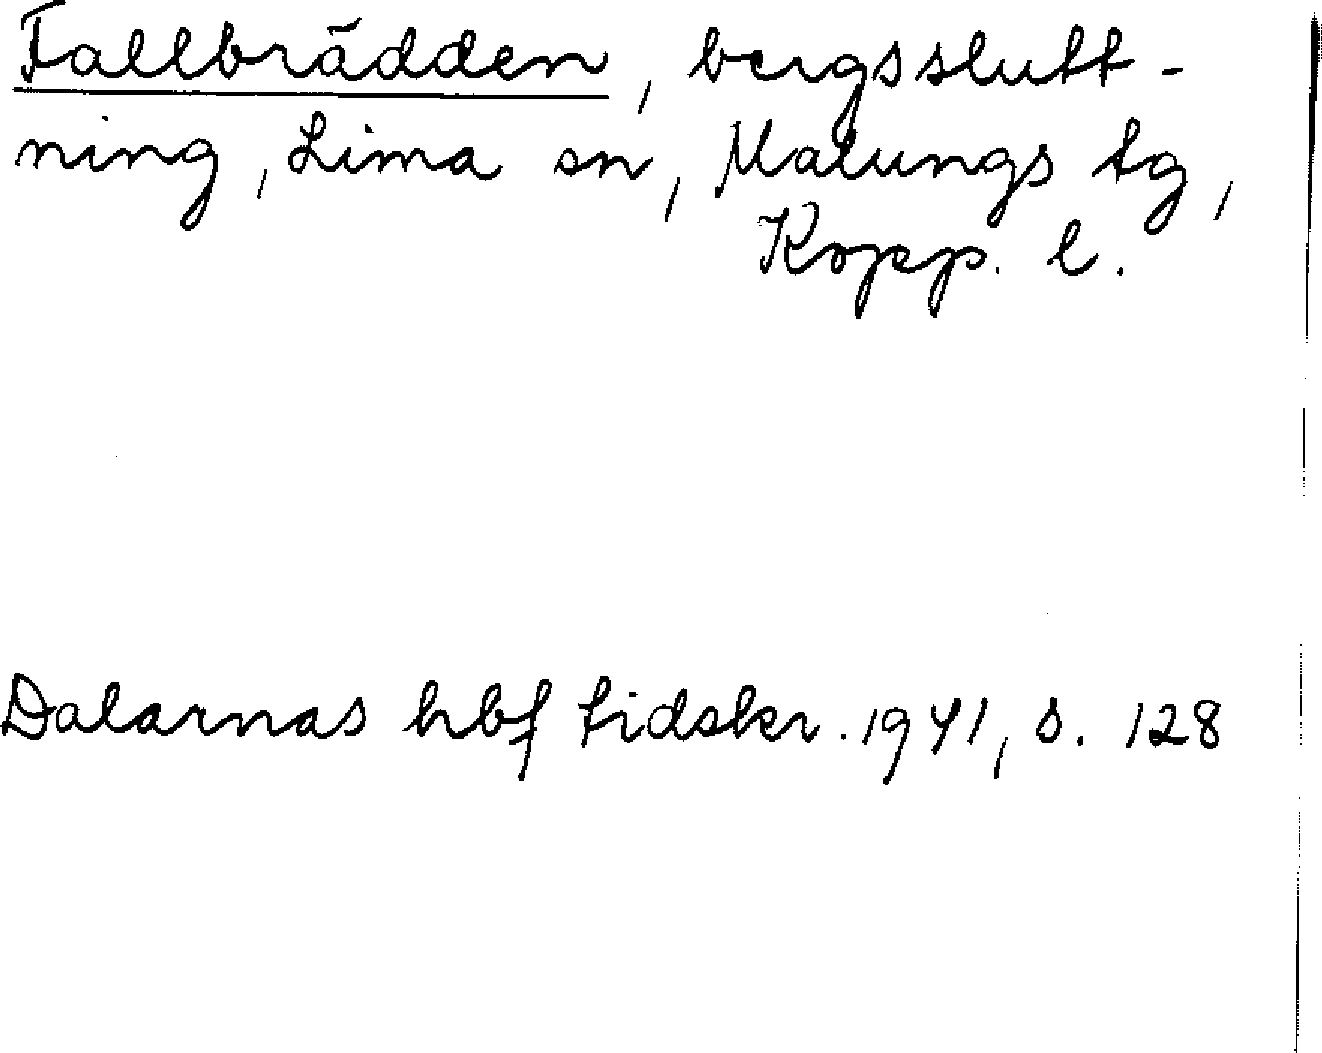 Fallbrädden, bergsslutt-
ning, Lima sn, Malungs tg,
Kopp. l.
Dalarnas hbf tidskr. 1941, s. 128